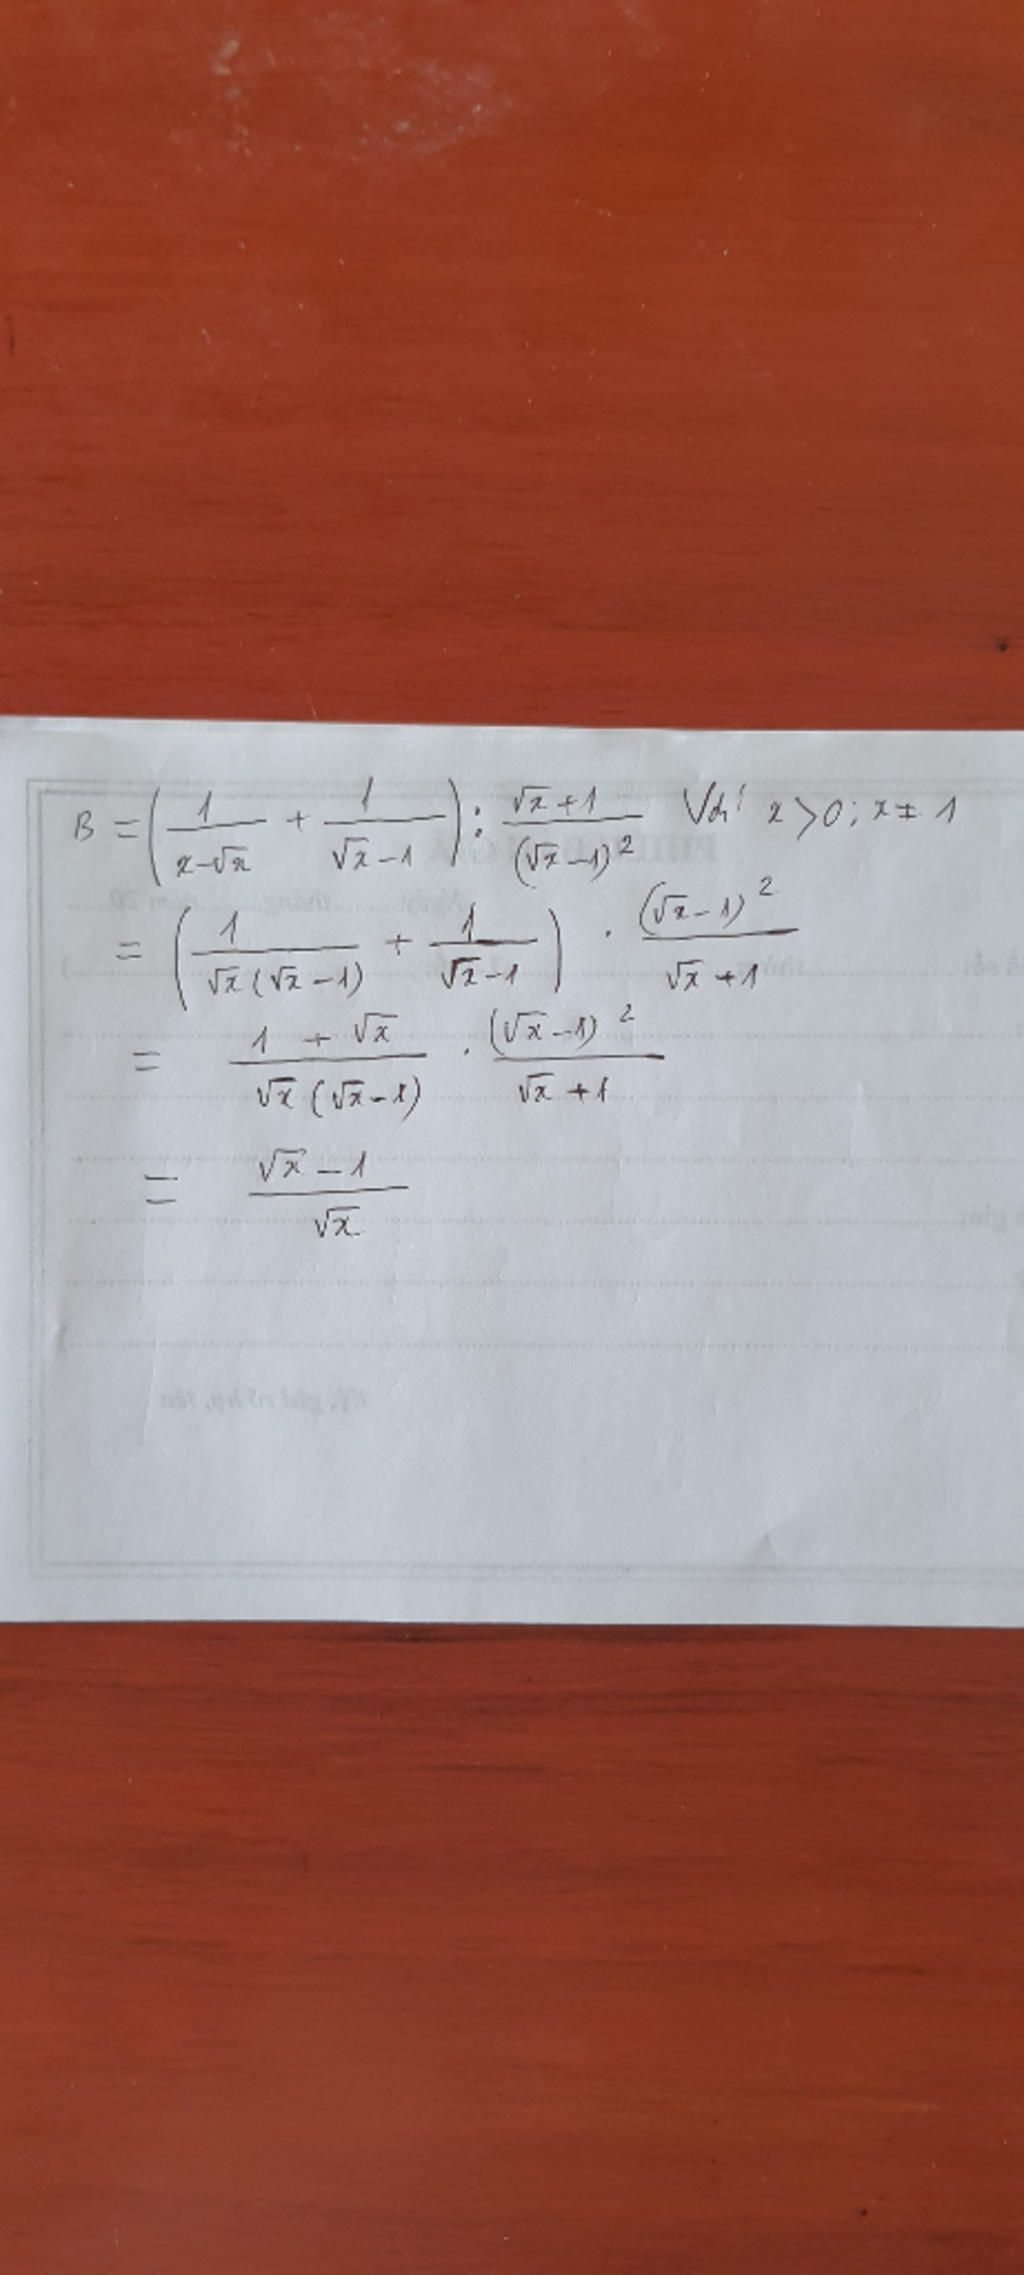 B = (1/(x-√x) + 1/(√x-1)) : (√x+1)/(√x-1)² Với x>0; x≠1
= (1/(√x(√x-1)) + 1/(√x-1)) . (√x-1)²/(√x+1)
= (1+√x)/(√x(√x-1)) . (√x-1)²/(√x+1)
= (√x-1)/√x